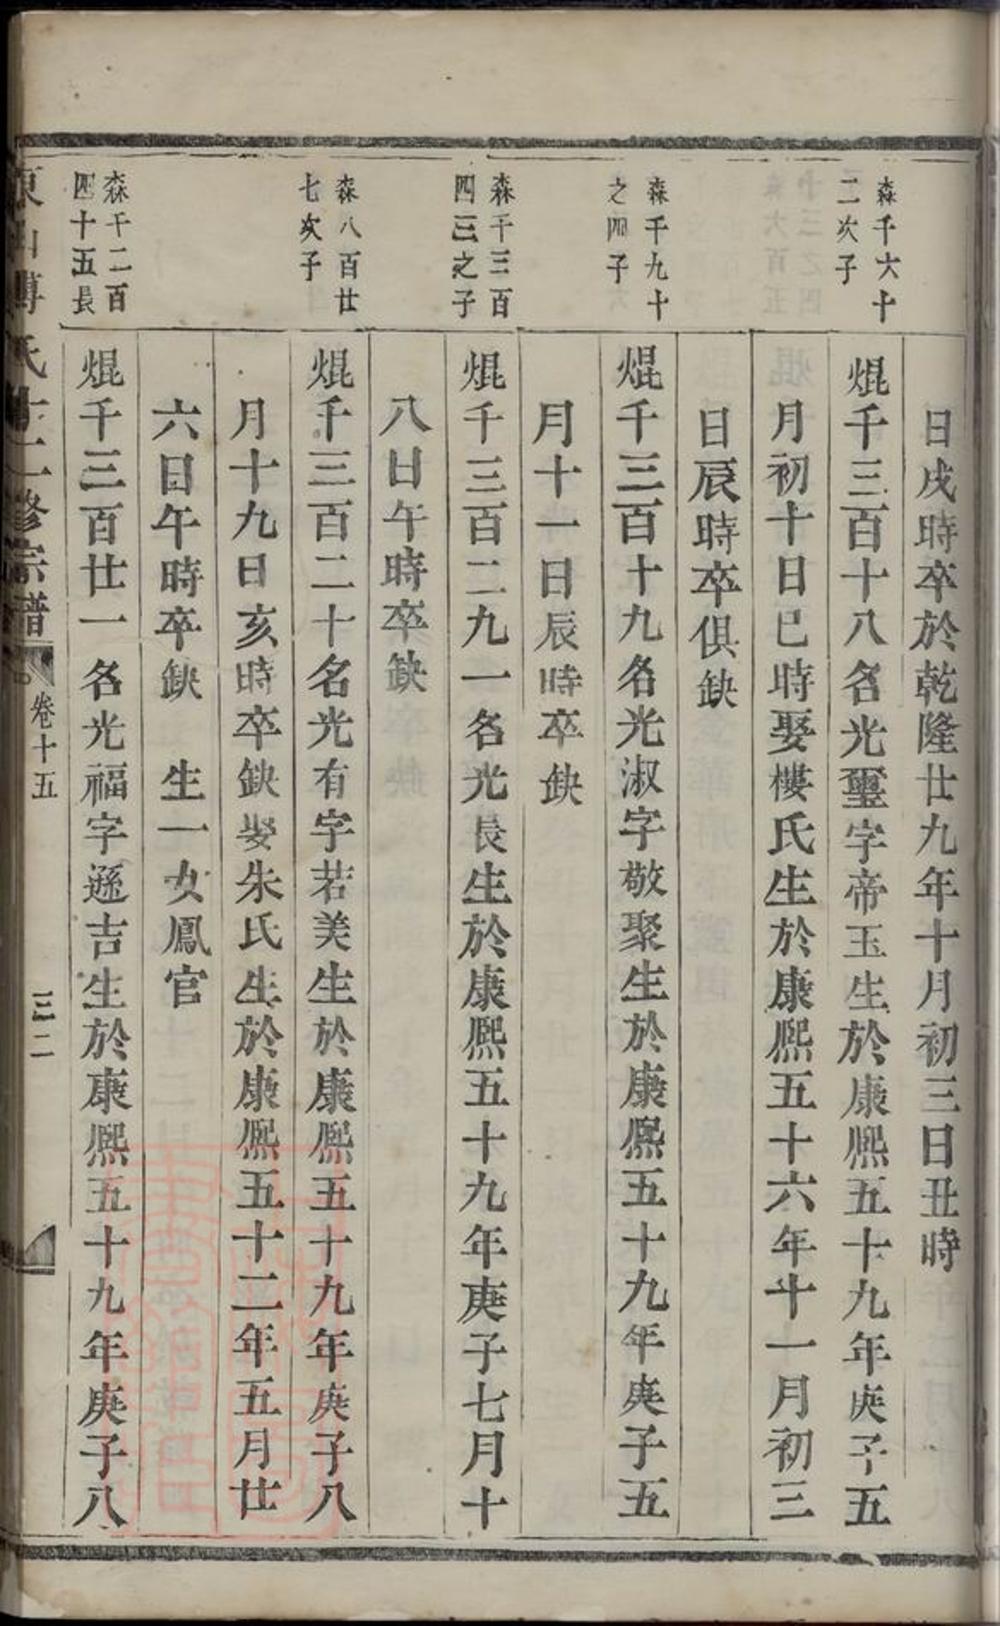 日戌時卒於乾隆廿九年十月初三日丑時
森千六十
二次子
焜千三百十八名光璽字帝玉生於康熙五十九年庚子五
月初十日巳時娶樓氏生於康熙五十六年十一月初三
日辰時卒俱缺
森千九十
之四子
焜千三百十九名光淑字敬聚生於康熙五十九年庚子五
月十一日辰時卒缺
森千三百
四三之子
焜千三百二九一名光長生於康熙五十九年庚子七月十
八日午時卒缺
森八百廿
七次子
焜千三百二十名光有字若美生於康熙五十九年庚子八
月十九日亥時卒缺娶朱氏生於康熙五十二年五月廿
六日午時卒缺 生一女鳳官
森千二百
四十五長
焜千三百廿一名光福字遜吉生於康熙五十九年庚子八
氏十二修宗譜
卷十五
三二